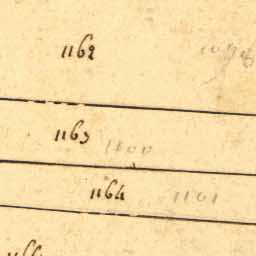 1162
1163 1100
1164 1101